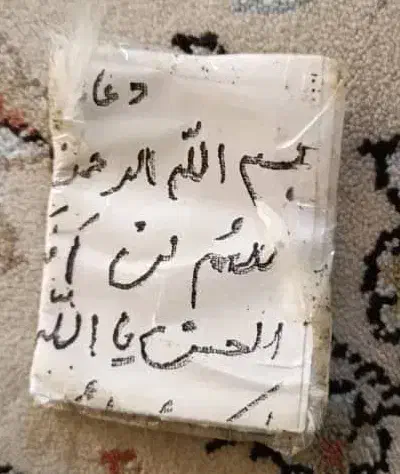 دعا
بسم الله الرحمن
للهم كن
الحسن يا الله